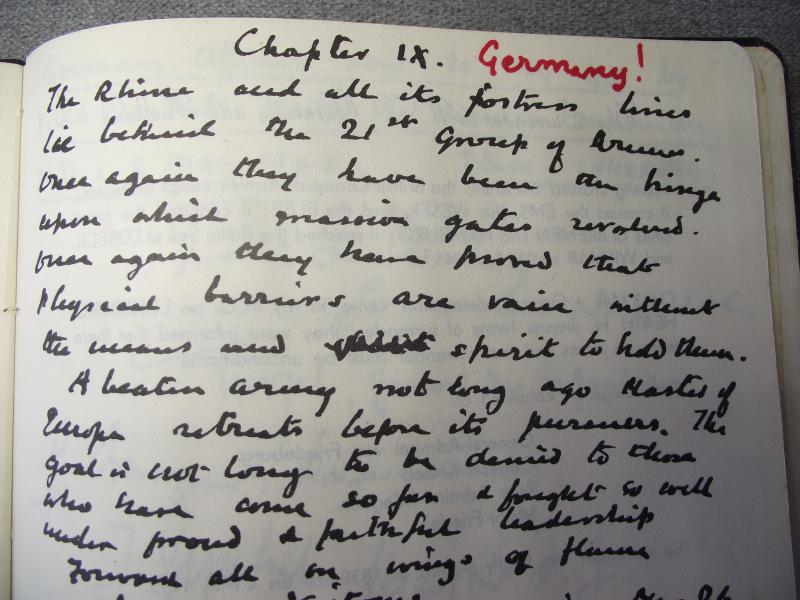 Chapter IX. Germany!
The Rhine and all its fortress lines
lie behind the 21st Group of Armies.
Once again they have been the hinge
upon which massive gates revolved.
Once again they have proved that
physical barriers are vain without
the means and spirit to hold them.
A beaten army not long ago Master of
Europe retreats before its pursuers. The
goal is not long to be denied to those
who have come so far & fought so well
under proud & faithful leadership
Forward all on wings of flame